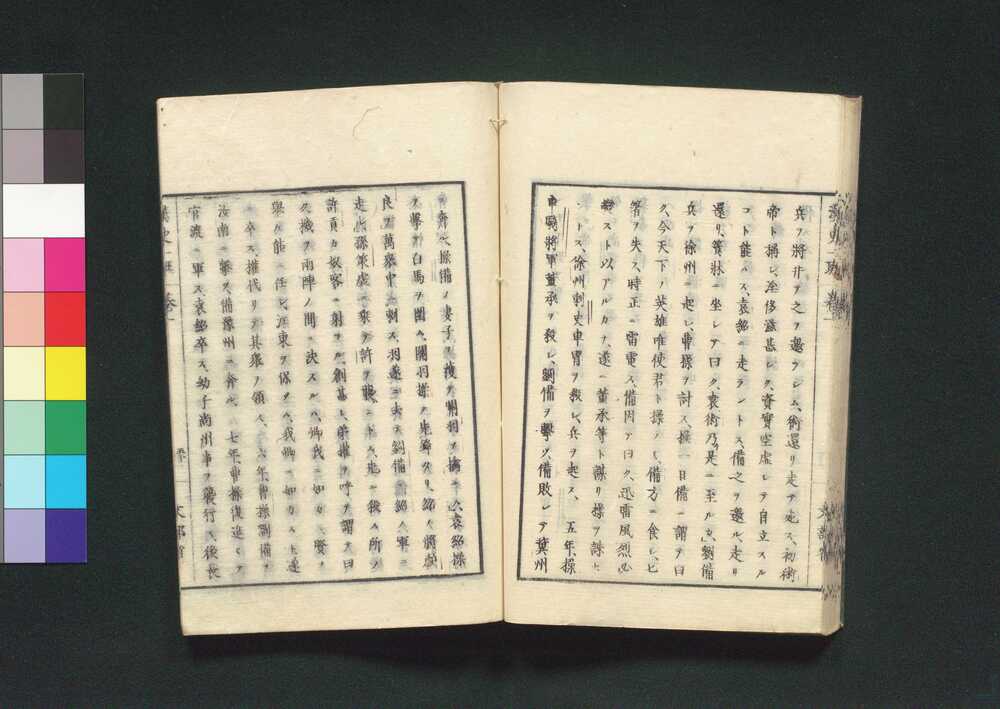 兵ヲ將井テ之ヲ邀ヲシム、術還リ走テ死ス、初術
帝ト稱シ、淫侈滋甚シク、資實空虚シテ自立スル
コト能ハス、袁紹ニ走ラントス、備之ヲ邀ル、走リ
還リ、簀牀ニ坐シテ曰ク、袁術乃是ニ至ルカ、劉備
兵ヲ徐州ニ起シ、曹操ヲ討ス、操一日備ニ謂テ曰
ク、今天下ノ英雄唯使君ト操ノミ、備方ニ食シ、匕
箸ヲ失ス、時正ニ雷電ス、備因テ曰ク、迅雷風烈必
變スト以アルカナ、遂ニ董承等ト謀リ操ヲ誅セ
ントス、徐州刺史車冑ヲ殺シ、兵ヲ起ス、五年、操
車騎將軍董承ヲ殺シ、劉備ヲ擊ツ、備敗レテ冀州
ニ奔ル、操備ノ妻子ヲ獲テ關羽ヲ擒ニス、袁紹操
ヲ擊テ白馬ヲ圍ム、關羽操ノ先鋒タリ、紹カ將顔
良ヲ萬衆中ニ刺ス、羽遂ニ去テ劉備ニ紹カ軍ニ
走ル、孫策虚ニ乘テ許ヲ襲ントス、先ニ殺ス所ノ
許貢カ奴客ニ射ラル、創甚シ、弟權ヲ呼テ謂テ曰
ク、機ヲ兩陣ノ間ニ決スルハ、卿我ニ如カス、賢ヲ
擧ケ能ニ任シ、江東ヲ保ツハ、我卿ニ如カスト、遂
ニ卒ス、權代リテ其衆ヲ領ス、六年、曹操劉備ヲ
汝南ニ擊ツ、備荊州ニ奔ル、七年、曹操復進ミテ
官渡ニ軍ス、袁紹卒ス、幼子尚州事ヲ襲行ス、後長
文部省